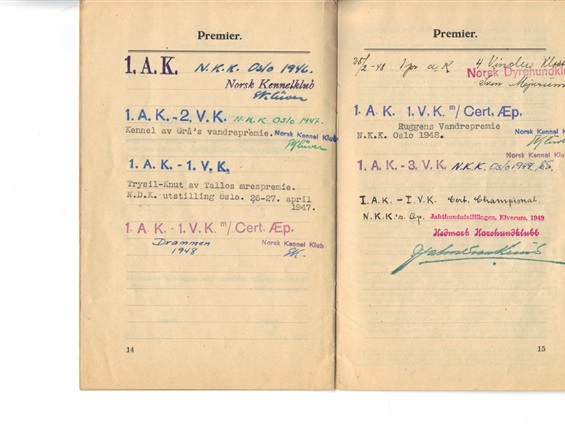 Premier.
1. A. K. N.K.K. Oslo 1946.
Norsk Kennelklub
1. A. K. - 2. V. K. N.K.K. Oslo 1947.
Kennel av Grå's vandrepremie. Norsk Kennel Klub
1. A. K. - 1. V. K.
Trysil-Knut av Tallos ærespremie.
N.D.K. utstilling Oslo. 26-27. april
1947.
1. A. K. - 1. V. K. m/ Cert. Æp.
Drammen Norsk Kennel Klub
1948
14
Premier.
1 pr 4 Vinder Klasse
Norsk Dyrehundkl
1. A. K. 1. V. K. m/ Cert. Æp.
Ruggens Vandrepremie
N.K.K. Oslo 1948. Norsk Kennel K
Norsk Kennel K
1. A. K. - 3. V. K. N.K.K. Oslo 1948,
I. A. K. - I. V. K. Cert. Championat.
N.K.K.'s Æp. Jakthundutstillingen, Elverum, 1949
Hedmark Harehundklubb
15